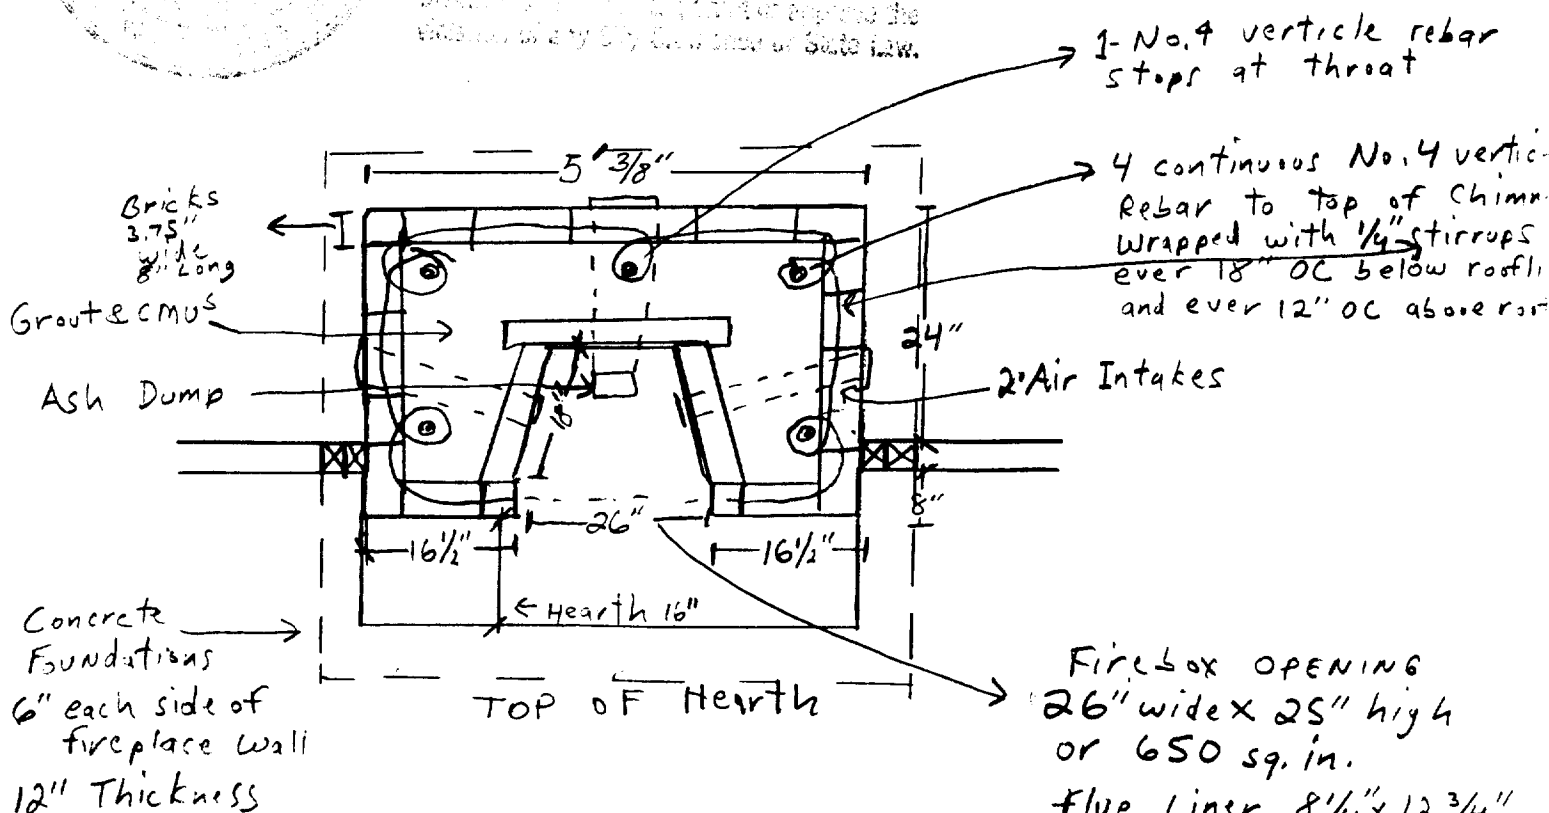 the
or State Law.
1- No.4 verticle rebar
stops at throat
5' 3/8"
4 continuous No.4 vertic
Rebar to top of Chimn
wrapped with 1/4" stirrups
ever 18" OC below roofli
and ever 12" OC above roo
Bricks
3.75"
wide
8" Long
Grout & CMUs
24"
Ash Dump
18"
2 Air Intakes
8"
26"
16 1/2"
16 1/2"
← Hearth 16"
Concrete
Foundations
6" each side of
fireplace wall
12" Thickness
TOP OF Hearth
Firebox OPENING
26" wide x 25" high
or 650 sq. in.
Flue Liner 8 1/2" x 12 3/4"